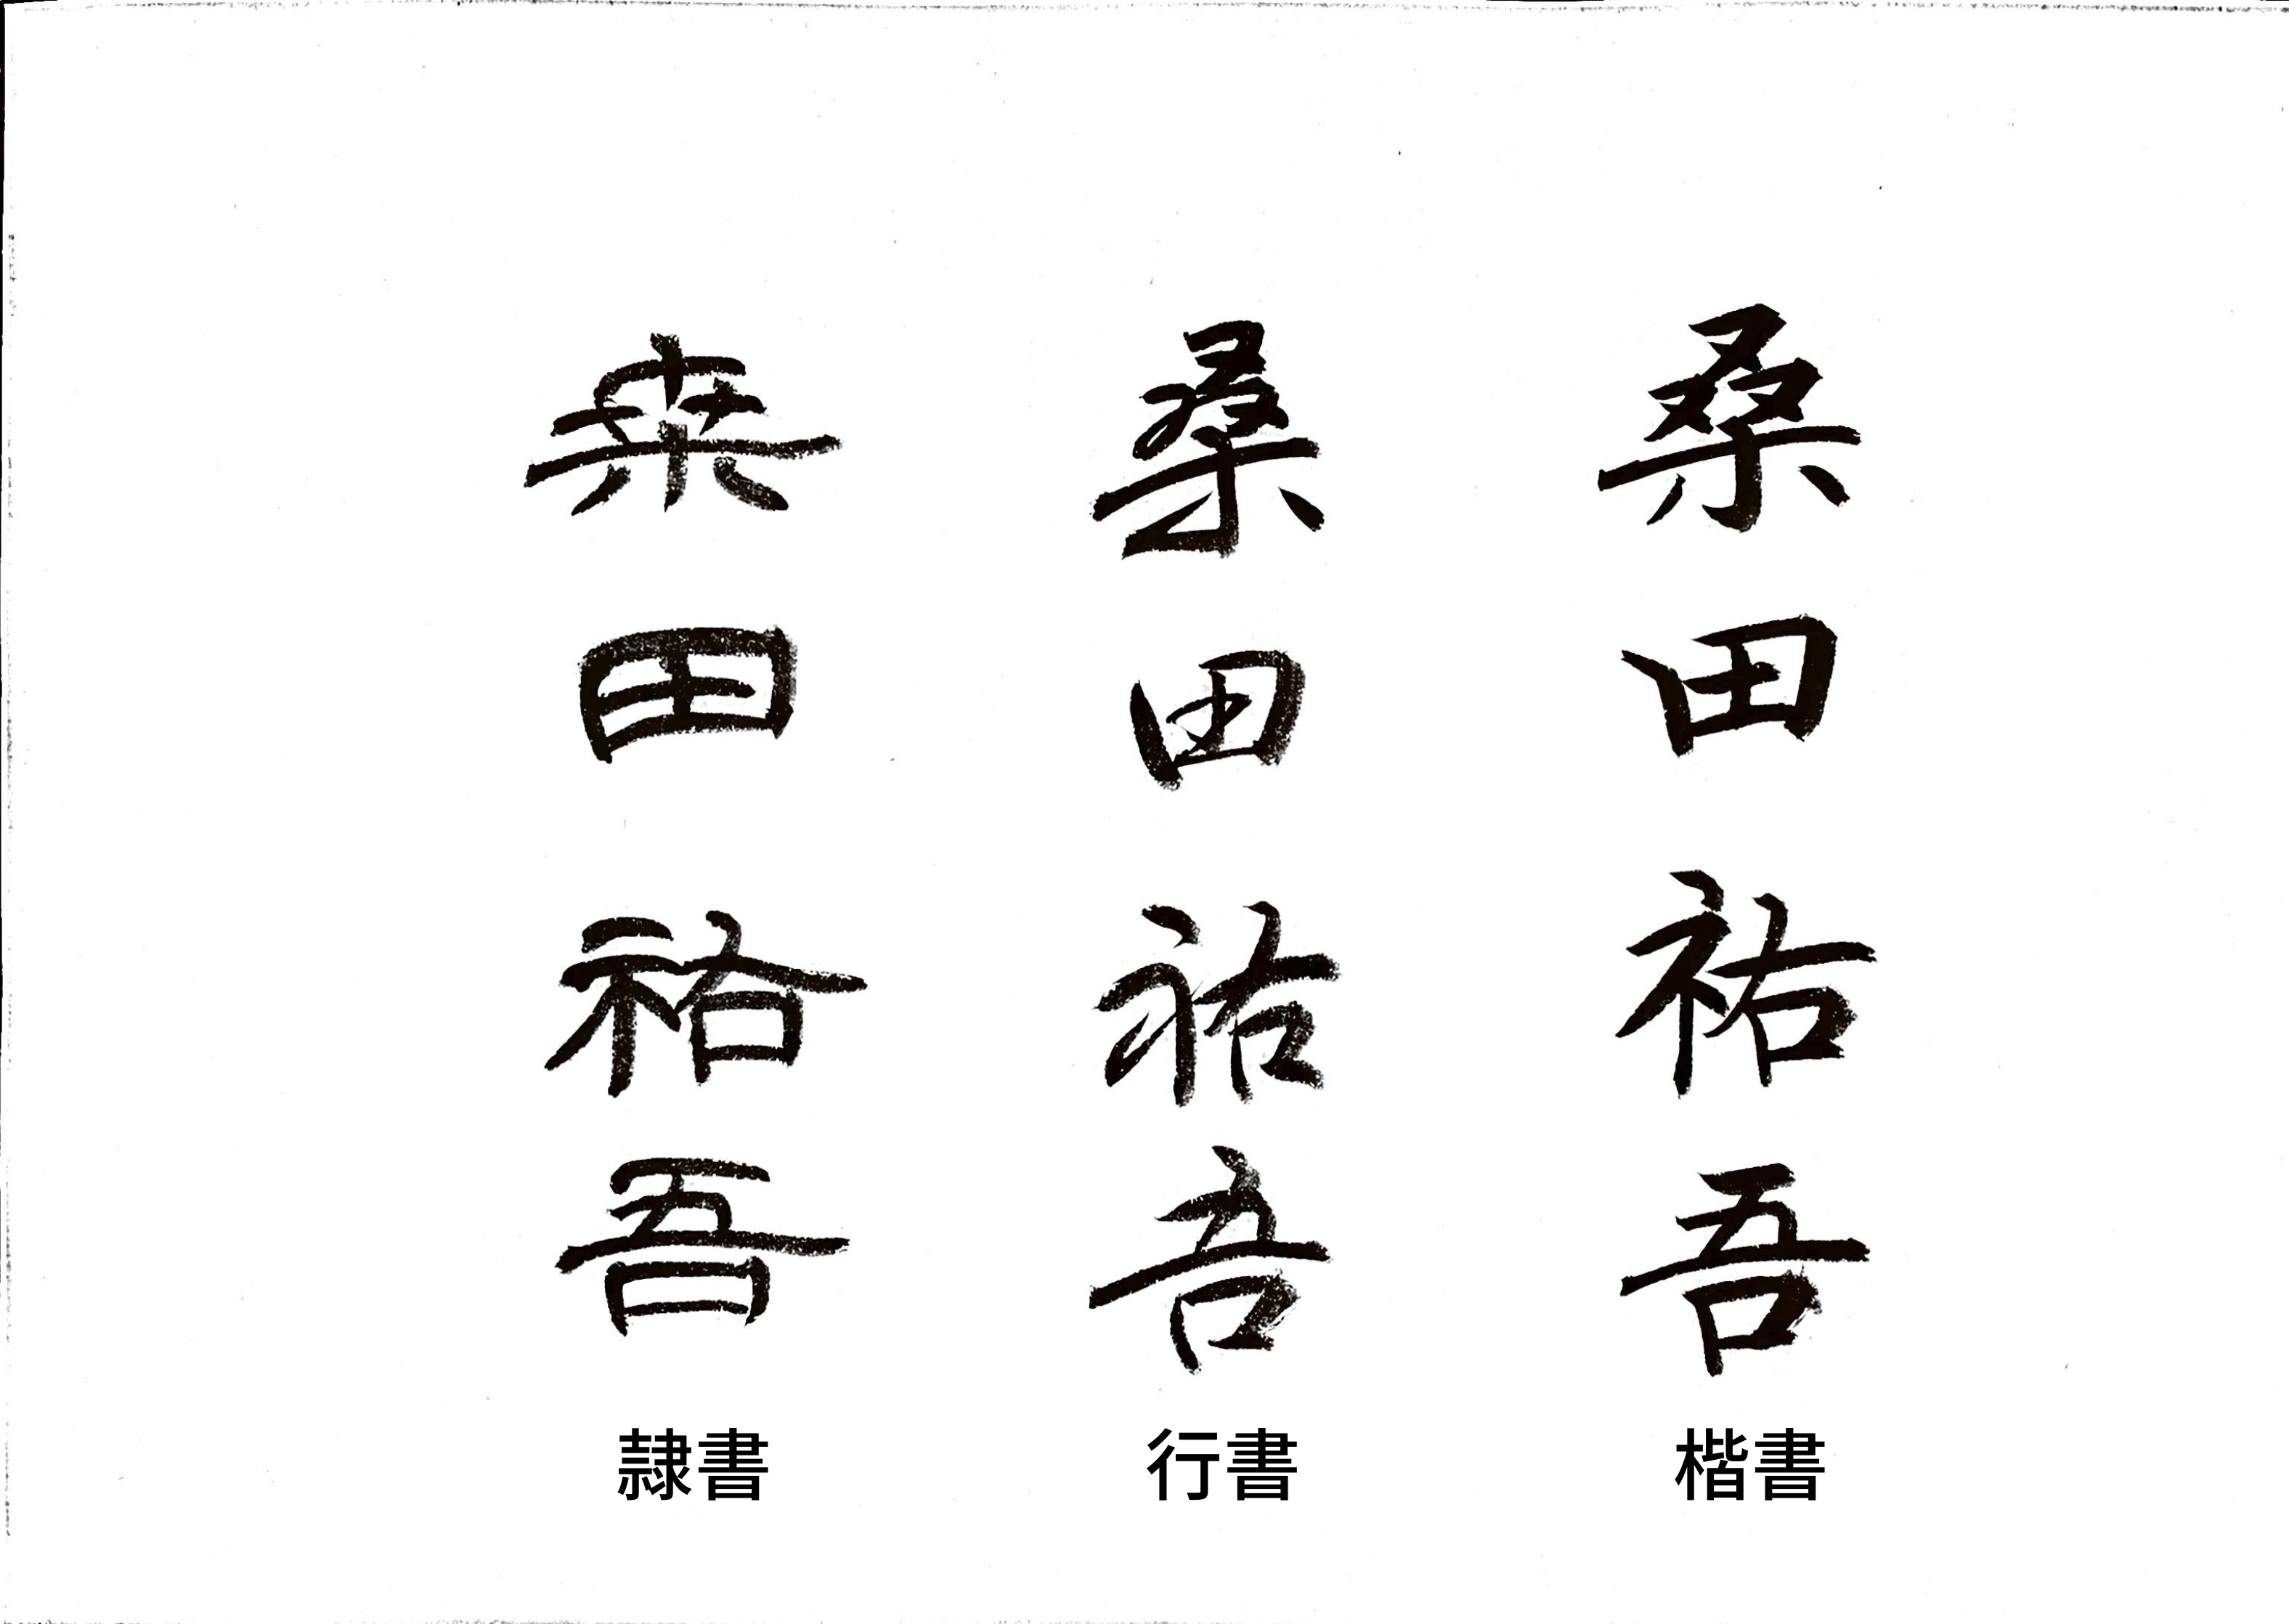 桑田祐吾
楷書
桑田祐吾
行書
桒田祐吾
隷書